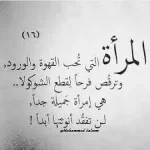 (١٦)
المرأة التي تُحب القهوة والورود,
وترقُص فرحاً لِقطع الشوكولا..
هي إمرأة جَميلة جداً,
لن تفقُد أنوثتها أبداً !
@Mohammed Saleem